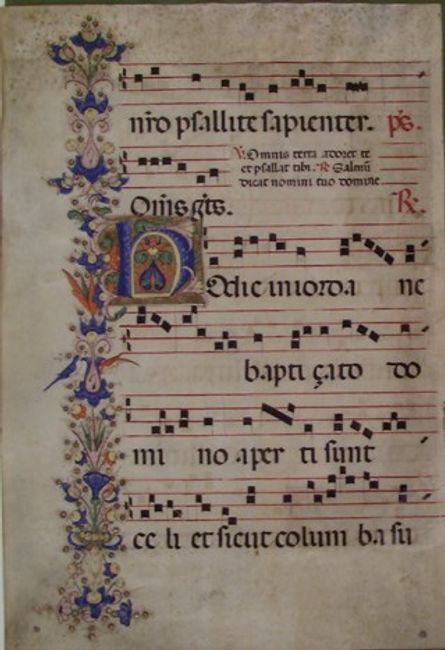 nr̄o psallite sapienter. p̄s.
V. Omnis terra adoret te
et psallat tibi. R. Salmū
dicat nomini tuo domine
Om̄s gēs. R.
Hodie in iorda ne
bapti çato do
mi no aper ti sunt
ce li et sicut colum ba su